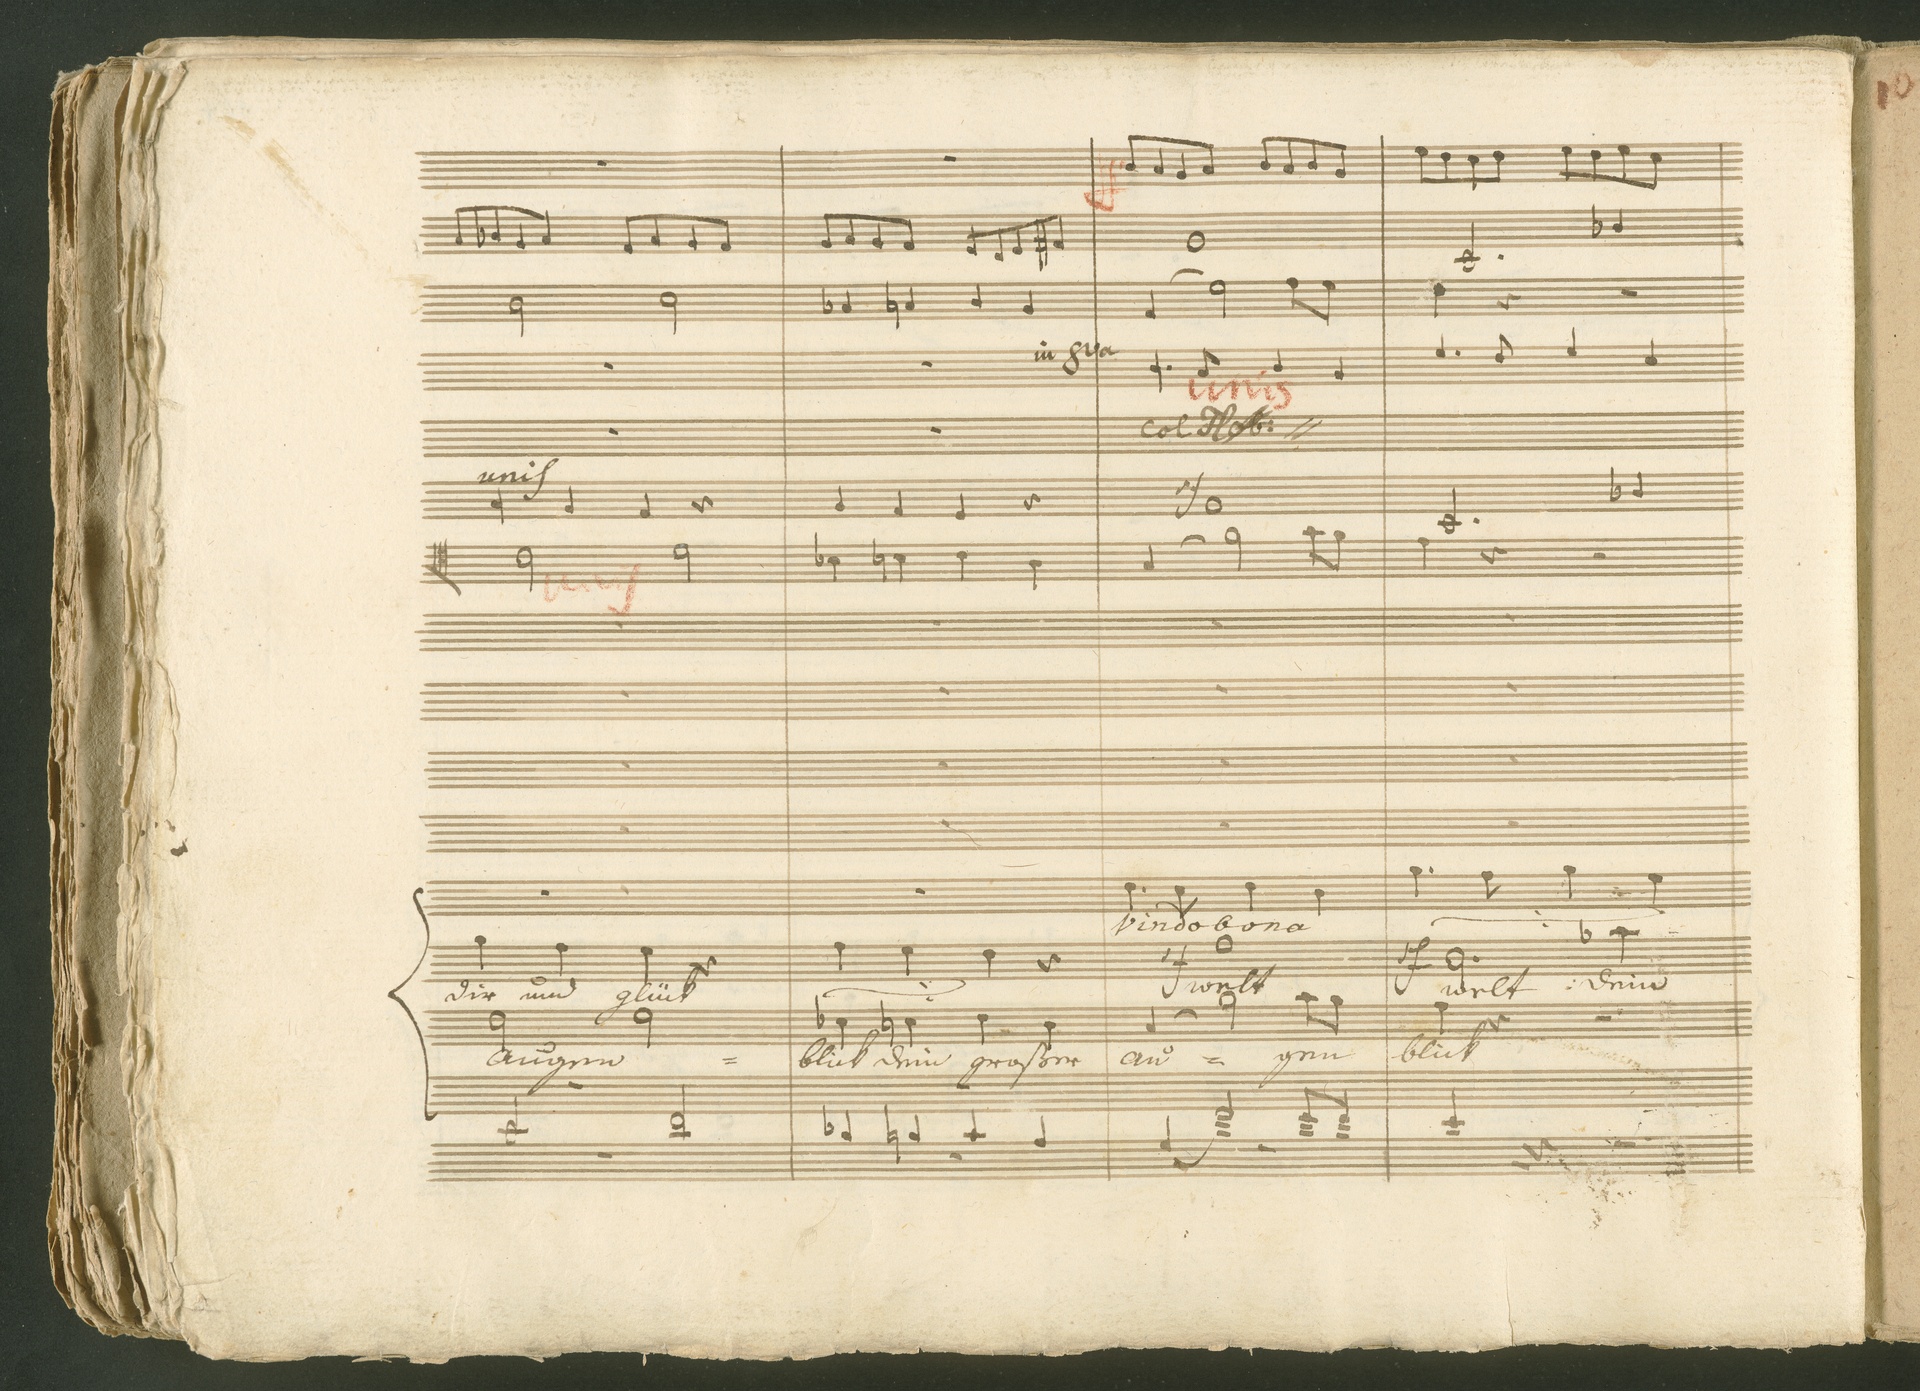 10
ff
in 8va
unis
col Ob: //
unis
sf
unis
Vindobona
dir und glück
sf welt
sf welt : dein
augen = blick dein großer au = gen blick